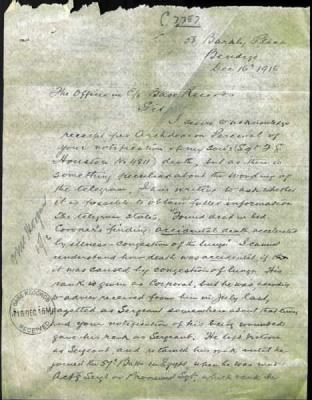 58 Barkly Place
Bendigo
Dec 16th 1916
The Officer in C/o Base Records
Sir,
I desire to acknowledge
receipt per Archdeacon Percival of
your notification of my son's Sgt F. G.
Houston No 4811 death, but as there is
something peculiar about the wording of
the telegram, I am writing to ask whether
it is possible to obtain fuller information
The telegram states, "Found dead in bed
Coroner's finding accidental death accelerated
by illness - congestion of the lungs" I cannot
understand how death was accidental, if
it was caused by congestion of lungs. His
rank is given as Corporal, but he was according
to advice received from him in July last,
gazetted as Sergeant somewhere about that time,
and your notification of his being wounded
gave his rank as Sergeant. He left Victoria
as Sergeant and retained his rank until he
joined the 57th Battn in Egypt when he was made
Actg Sergt or Provisional Sgt, which rank he
BASE RECORDS
18 DEC 1916
RECEIVED